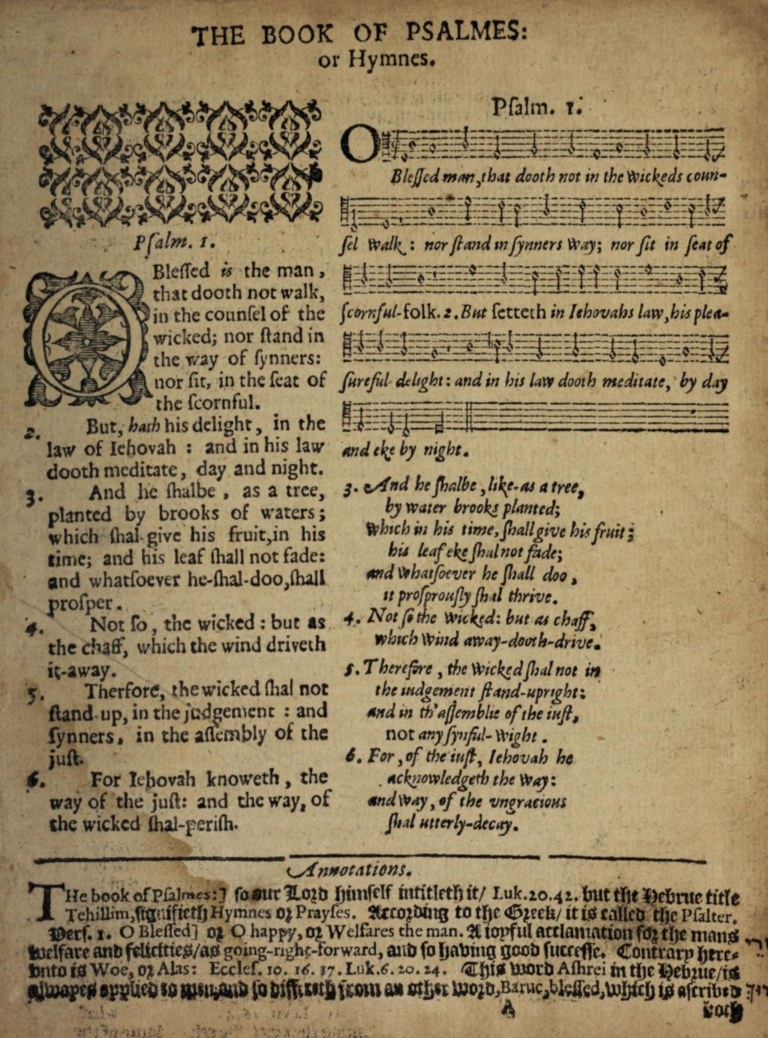 THE BOOK OF PSALMES:
or Hymnes.
Pſalm. 1.
O Bleſſed is the man,
that dooth not walk,
in the counſel of the
wicked; nor ſtand in
the way of ſynners:
nor ſit, in the ſeat of
the ſcornful.
2. But, hath his delight, in the
law of Iehovah : and in his law
dooth meditate, day and night.
3. And he ſhalbe, as a tree,
planted by brooks of waters;
which ſhal-give his fruit,in his
time; and his leaf ſhall not fade:
and whatſoever he-ſhal-doo,ſhall
proſper.
4. Not ſo, the wicked : but as
the chaff, which the wind driveth
it-away.
5. Therfore, the wicked ſhal not
ſtand-up, in the judgement : and
ſynners, in the aſſembly of the
juſt.
6. For Iehovah knoweth, the
way of the juſt: and the way, of
the wicked ſhal-periſh.
Pſalm. 1.
O Bleſſed man,that dooth not in the wickeds coun-
ſel walk : nor ſtand in ſynners way; nor ſit in ſeat of
ſcornful-folk. 2. But ſetteth in Iehovahs law,his plea-
ſureful delight: and in his law dooth meditate, by day
and eke by night.
3. And he ſhalbe, like-as a tree,
by water brooks planted;
which in his time, ſhall give his fruit;
his leaf eke ſhal not fade;
and whatſoever he ſhall doo,
it proſprouſly ſhal thrive.
4. Not ſo the wicked: but as chaff,
which wind away-dooth-drive.
5. Therefore, the wicked ſhal not in
the iudgement ſtand-upright:
and in th'aſſemblie of the iuſt,
not any ſynful-wight.
6. For, of the iuſt, Iehovah he
acknowledgeth the way:
and way, of the vngracious
ſhal utterly-decay.
Annotations.
THe book of Pſalmes:] ſo our Lord himſelf intitleth it/ Luk.20.42. but the Hebrue title
Tehillim,ſignifieth Hymnes or Prayſes. According to the Greek/ it is called the Pſalter.
Verſ. 1. O Bleſſed] or O happy, or Welfares the man. A ioyful acclamation for the mans
welfare and felicities/as going-right-forward, and ſo having good ſucceſſe. Contrary here-
vnto is Woe, or Alas: Eccleſ. 10. 16. 17. Luk.6. 20. 24. This word Aſhrei in the Hebrue/is
alwayes applied to men,and ſo differeth from an other word,Baruc,bleſſed,which is aſcribed
A both